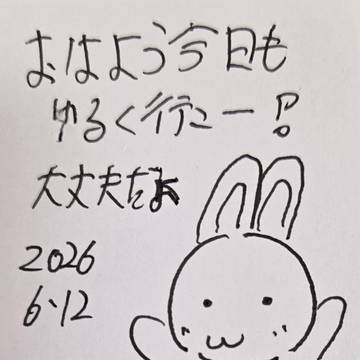 おはよう今日も
ゆるく行こー!
大丈夫だよ
2026
6.12